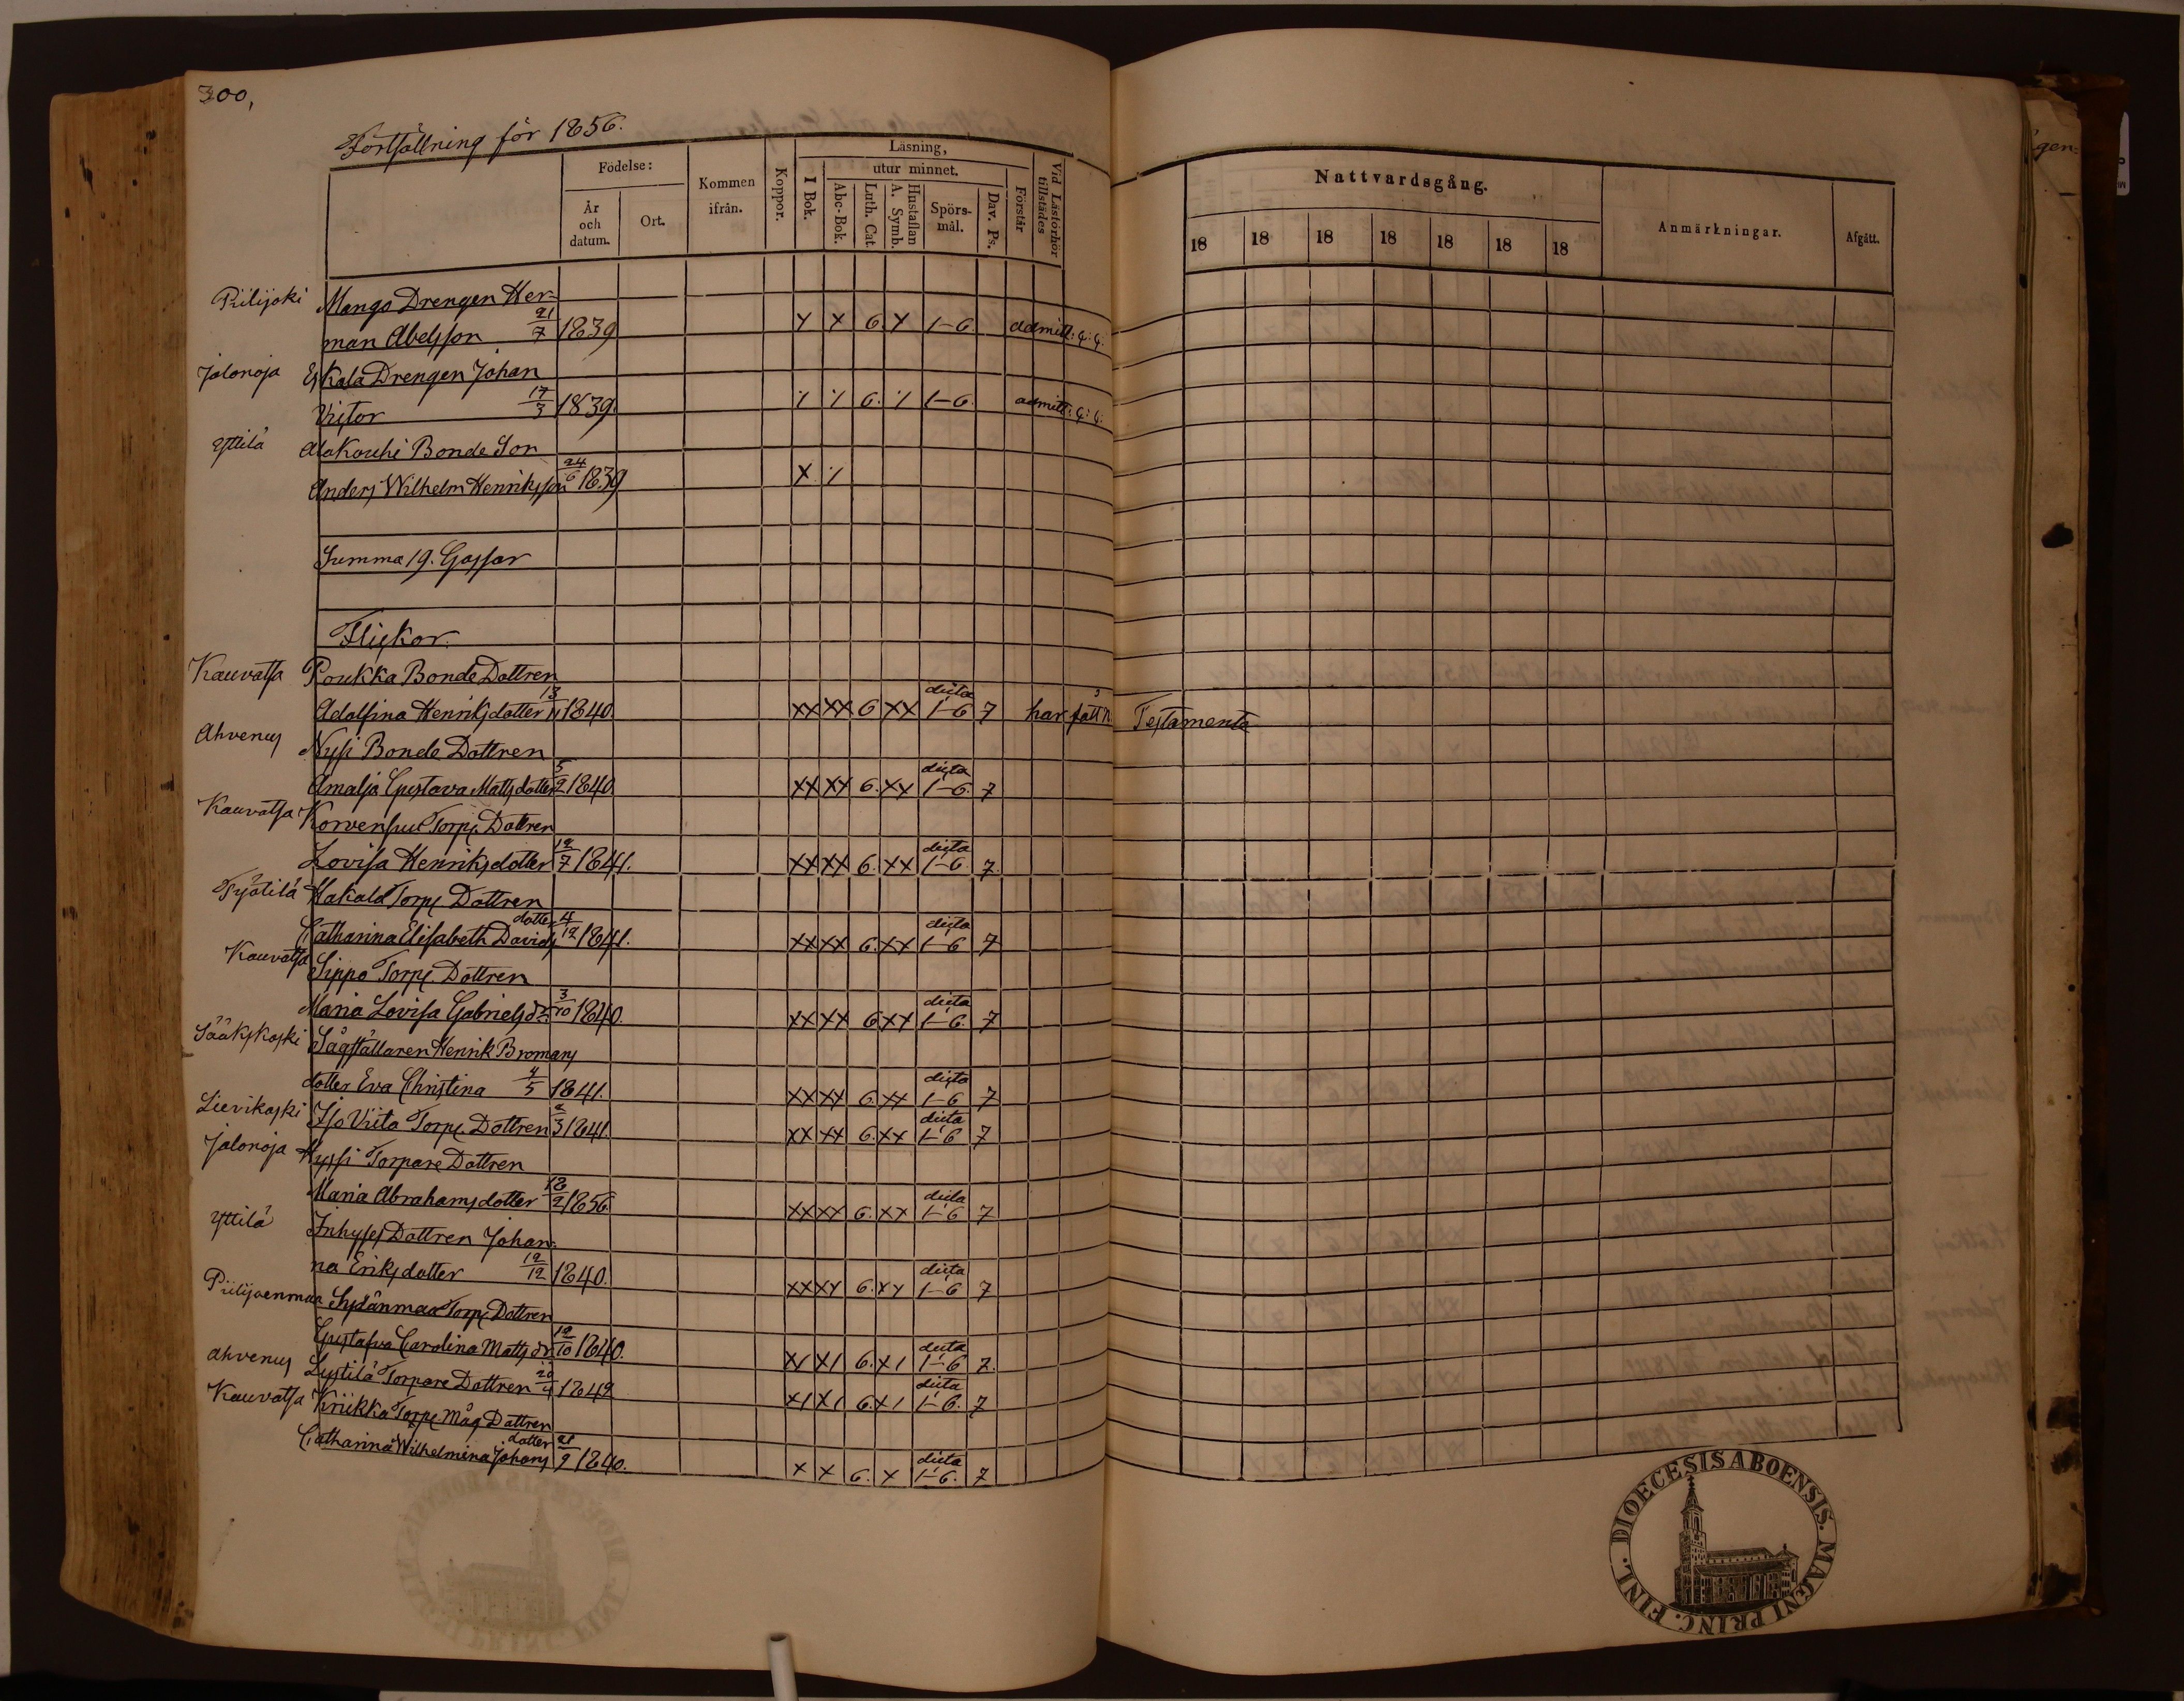 300,
Fortsättning för 1856.
Födelse:
År och datum.
Ort.
Kommen ifrån.
Koppor.
Läsning,
I Bok.
utur minnet.
Abc-Bok.
Luth. Cat.
Hustaflan A. Symb.
Spörs-mål.
Dav. Ps.
Förstår
Vid Läsförhör tillstädes
Nattvardsgång.
18 18 18 18 18 18 18
Anmärkningar.
Afgått.
Piilijoki Mango Drengen Her-
man Abelsson 21/7 1839 X X 6 X 1-6 admitt: q: q.
Jalonoja Eskala Drengen Johan
Victor 17/3 1839. 6. 1-6. admitt: q: q.
Yttilä Alakouhi Bonde Son
Anders Wilhelm Henriksson 24/6 1839 X
Summa 19. Gossar
Flickor.
Kauvatsa Poukka Bonde Dottren
Adolfina Henriksdotter 13/11 1840. XX XX 6 XX dicta 1-6 7 har fått N. Testamente
Ahvenus Nysi Bonde Dottren
Amalja Gustava Mattsdotter 5/2 1840. XX XX 6. XX dicta 1-6. 7
Kauvatsa Korvensuu Torp. Dottren
Lovisa Henriksdotter 12/7 1841. XX XX 6. XX dicta 1-6 7.
Työtilä Hakala Torp. Dottren
Catharina Elisabeth Davids dotter 4/12 1841. XX XX 6. XX dicta 1-6 7
Kauvatsa Sippo Torp. Dottren
Maria Lovisa Gabriels dr 3/10 1840. XX XX 6 XX dicta 1-6. 7
Sääkskoski Sågställaren Henrik Bromans
dotter Eva Christina 4/5 1841. XX XX 6. XX dicta 1-6 7
Lievikoski Iso Viita Torp. Dottren 2/3 1841. XX XX 6. XX dicta 1-6 7
Jalonoja Hyssi Torpare Dottren
Maria Abrahamsdotter 18/2 1856. XX XX 6. XX dicta 1-6 7
Yttilä Inhyses Dottren Johan-
na Eriksdotter 12/12 1840. XX XX 6. XX dicta 1-6 7
Piilijoenmaa Sydänmaa Torp. Dottren
Gustafva Carolina Matts dr 12/10 1840. X1 X1 6. X1 dicta 1-6 7.
Ahvenus Lystilä Torpare Dottren 1842 X1 X1 6. X1 dicta 1-6. 7
Kauvatsa Kriikka Torp. Måg Dottren
Catharina Wilhelmina Johans dotter 21/9 1840. X X 6. X dicta 1-6. 7
DIOECESIS ABOENSIS. MAGNI PRINC. FINL.